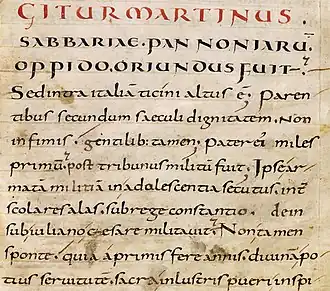 GITUR MARTINUS
SABBARIAE·PANNONIARŨ
OPPIDO, ORIUNDUS FUIT
Sed intra italiã ticini altus ẽ. Paren
tibus secundum saeculi dignitatem. Non
infimis. gentilib; tamen. Pater ei' miles
primũ, post tribunus militũ fuit. Ipse ar
mata militiã in adolescentia secutus, int
scolares alas, sub rege constantio. dein
sub iuliano cesare militavit. Non tamen
sponte. quia a primis fere annis, divinã po
tius servitutẽ, sacra inlustris pueri inspi